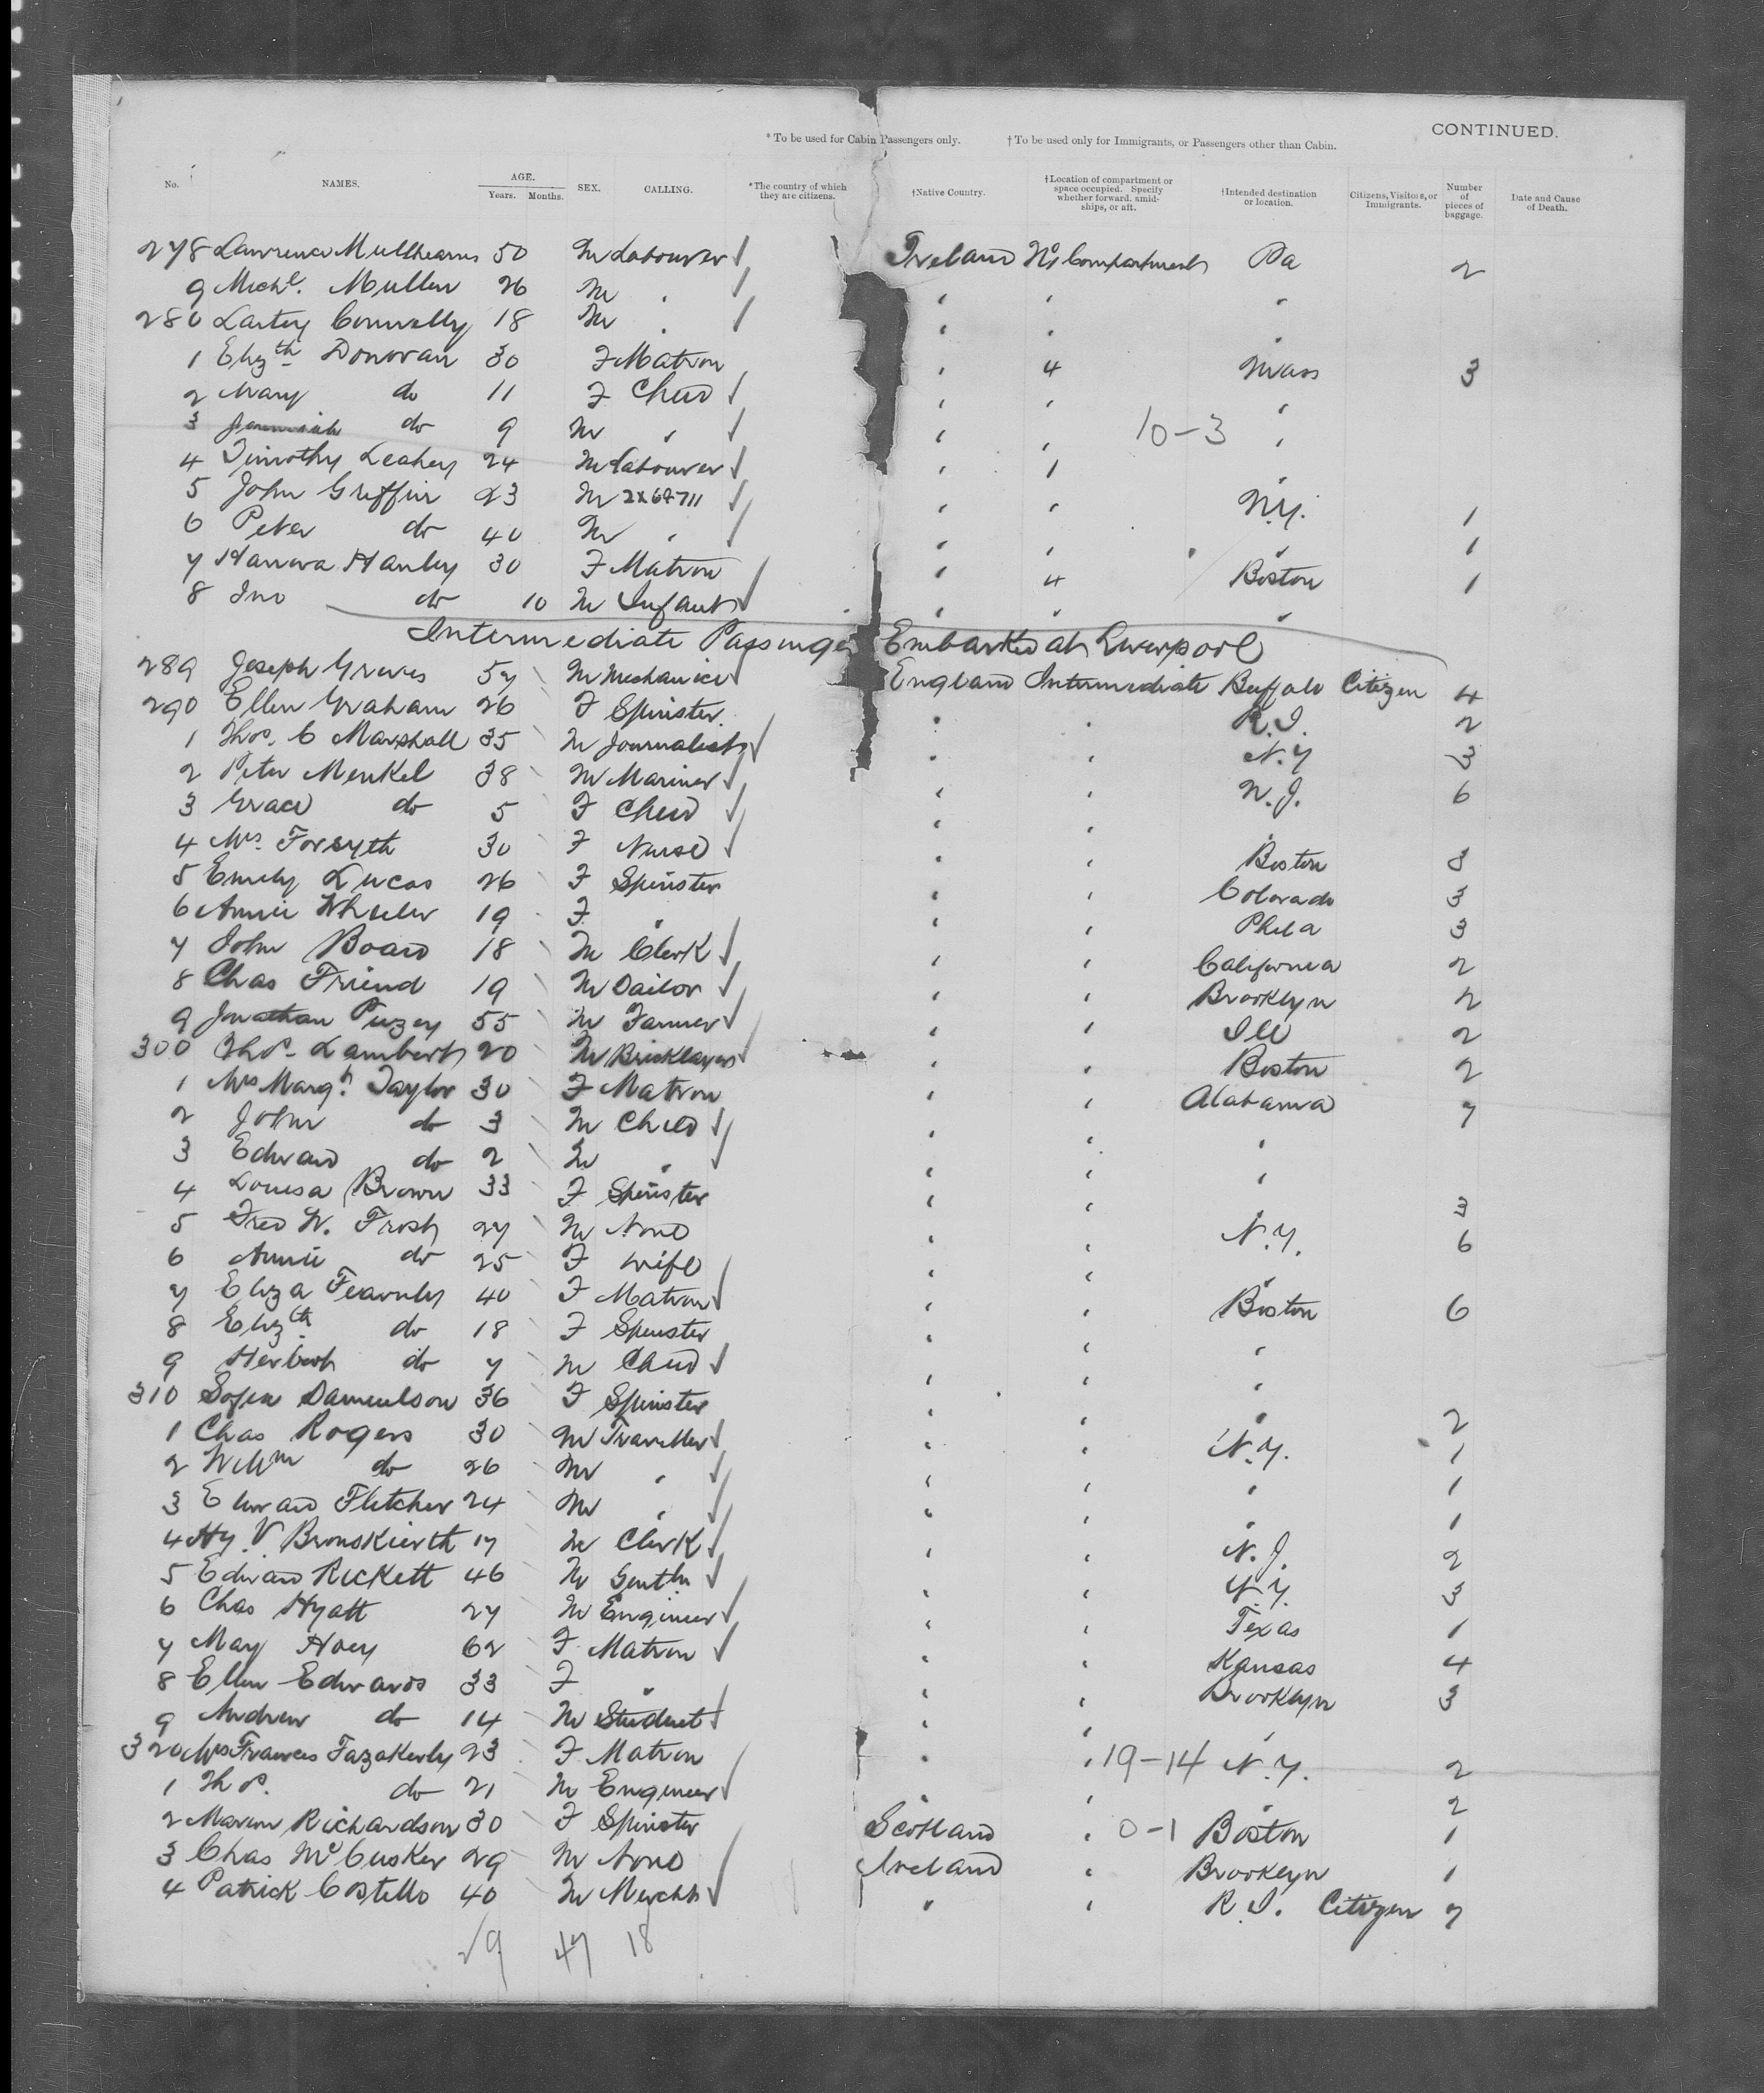 CONTINUED.
* To be used for Cabin Passengers only. † To be used only for Immigrants, or Passengers other than Cabin.
No. NAMES. AGE. Years. Months. SEX. CALLING. *The country of which they are citizens. †Native Country. †Location of compartment or space occupied. Specify whether forward, amidships, or aft. †Intended destination or location. Citizens, Visitors, or Immigrants. Number of pieces of baggage. Date and Cause of Death.
278 Lawrence Mullhearns 50 M Labourer Ireland No 1 Compartment Pa 2
9 Michl. Mullen 26 M " " " "
280 Connolly 18 M " " "
1 Elizth Donovan 30 F Matron " 4 Mass 3
2 Mary do 11 F Child " " "
3 Jeremiah do 9 M " " " 10-3 "
4 Timothy Leahey 24 M Labourer " 1
5 John Griffin 23 M 2X67711 " " N.Y. 1
6 Peter do 40 M " " " " 1
7 Hanora Hanley 30 F Matron " 4 Boston 1
8 Jno do 10 M Infant " " "
Intermediate Passenger Embarked at Liverpool
289 Joseph Greves 57 M Mechanic England Intermediate Buffalo Citizen 4
290 Ellen Graham 26 F Spinster " " R.I. 2
1 Thos. C Marshall 35 M Journalist " " N.Y 3
2 Peter Menkel 38 M Mariner " " N.J. 6
3 Grace do 5 F Child " "
4 Mrs. Forsyth 30 F Nurse " " Boston 3
5 Emily Lucas 26 F Spinster " " Colorado 3
6 Annie Wheeler 19 F " " " Phila 3
7 John Board 18 M Clerk " " California 2
8 Chas Friend 19 M Sailor " " Brooklyn 2
9 Jonathan Puzey 55 M Farmer " " Ill 2
300 Thos. Lambert 20 M Bricklayer " " Boston 2
1 Mrs Margt. Taylor 30 F Matron " " Alabama 7
2 John do 3 M Child " " "
3 Edward do 2 M " " " "
4 Louisa Brown 33 F Spinster " " 3
5 Fred W. Frost 27 M None " " N.Y. 6
6 Annie do 25 F Wife " " "
7 Eliza Fearnley 40 F Matron " " Boston 6
8 Elizth do 18 F Spinster " " "
9 Herbert do 7 M Child " " "
310 Sofia Danielson 36 F Spinster " " " 2
1 Chas Rogers 30 M Traveller " " N.Y. 1
2 Willm do 26 M " " " " 1
3 Edward Fletcher 24 M " " " " 1
4 Hy. V Bronskierth 17 M Clerk " " N.J. 2
5 Edward Rickett 46 M Gentln " " N.Y. 3
6 Chas Hyatt 27 M Engineer " " Texas 1
7 May Hoey 62 F Matron " " Kansas 4
8 Ellen Edwards 33 F " " " Brooklyn 3
9 Andrew do 14 M Student " " "
320 Mrs Frances Fazakerly 23 F Matron " " 19-14 N.Y. 2
1 Thos. do 21 M Engineer " " " 2
2 Marion Richardson 30 F Spinster Scotland " 0-1 Boston 1
3 Chas McCusker 29 M None Ireland " Brooklyn 1
4 Patrick Costello 40 M Mercht " " R.I. Citizen 7
47 18